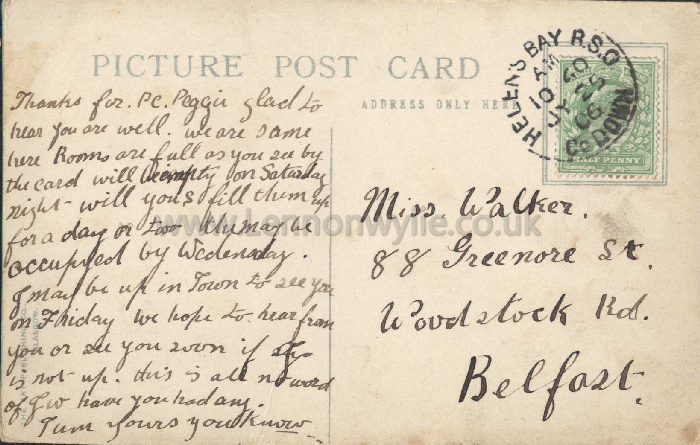 PICTURE POST CARD
ADDRESS ONLY HERE
HELEN'S BAY R.S.O
Co DOWN
10 40 AM
JY 25
06
HALF PENNY
Thanks for. P.C. Peggie glad to
hear you are well. we are same
here Rooms are full as you see by
the card will be empty on Saturday
night will yous fill them up
for a day or two they may be
occupied by Wedensday.
I may be up in Town to see you
on Friday we hope to hear from
you or see you soon if
is not up. this is all no word
of have you had any.
yours you know
Miss. Walker.
88 Greenore St.
Woodstock Rd.
Belfast.
www.Lennonwylie.co.uk